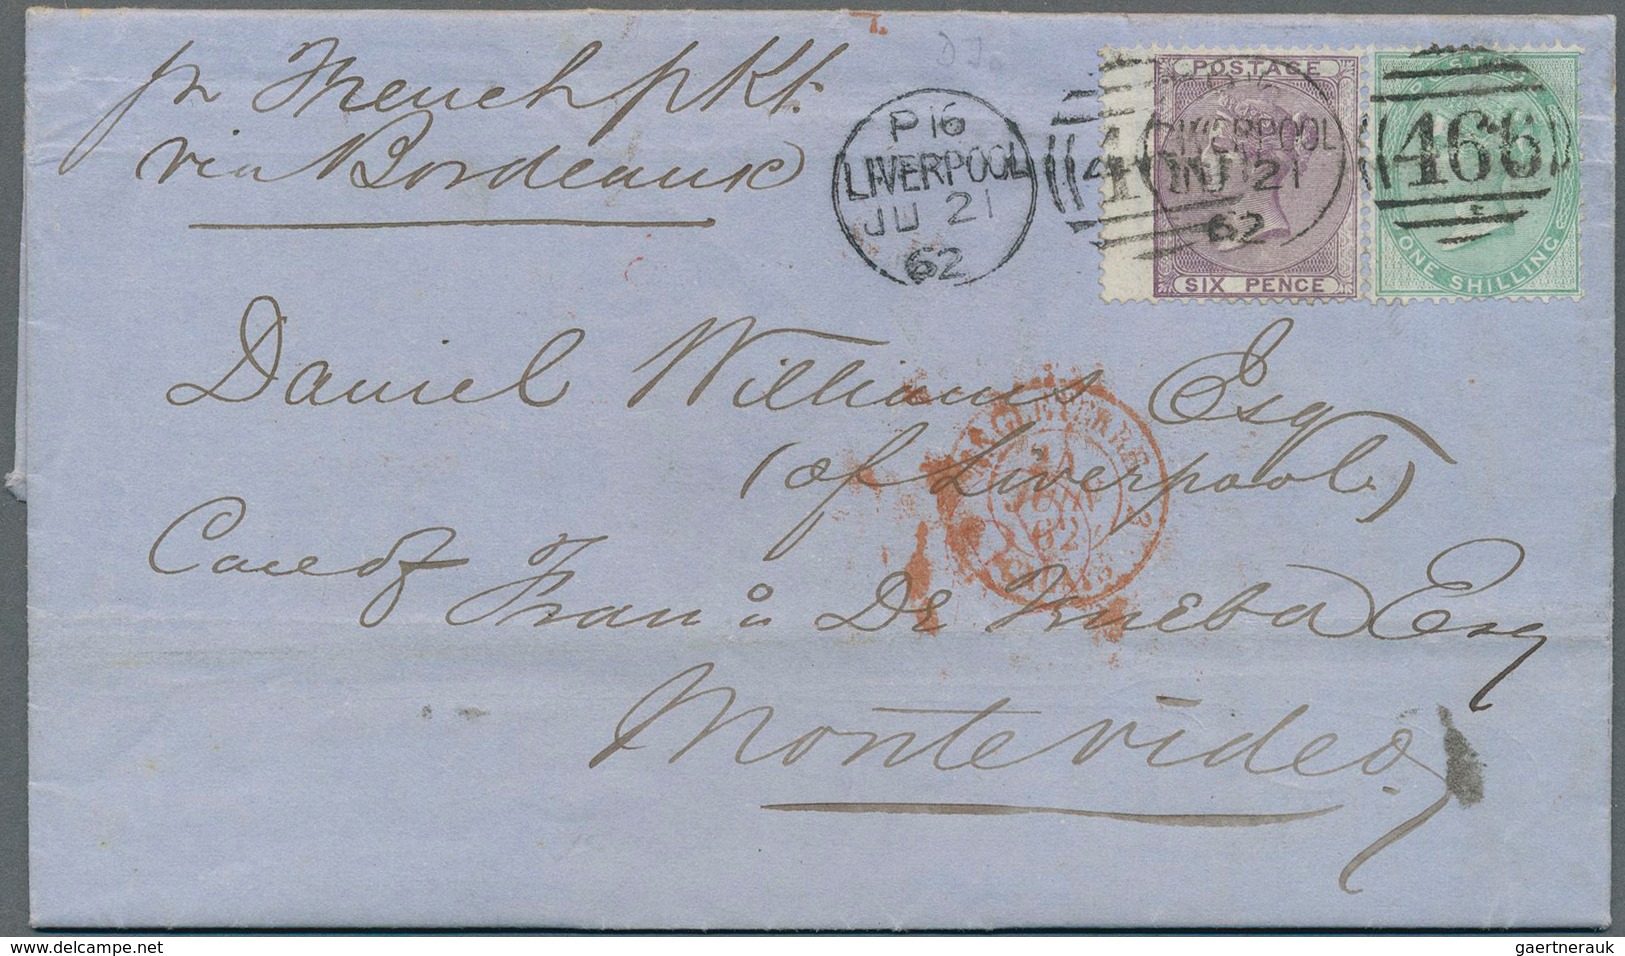 pr French pkt.
via Bordeaux
P 16
LIVERPOOL
JU 21
62
POSTAGE
LIVERPOOL
JU 21
62
SIX PENCE
466
ONE SHILLING
Daniel Williams Esq
(of Liverpool)
ANGLETERRE
JUIN
62
Care of Fran.co De Esq
Montevideo
delcampe.net
gaertnerauk